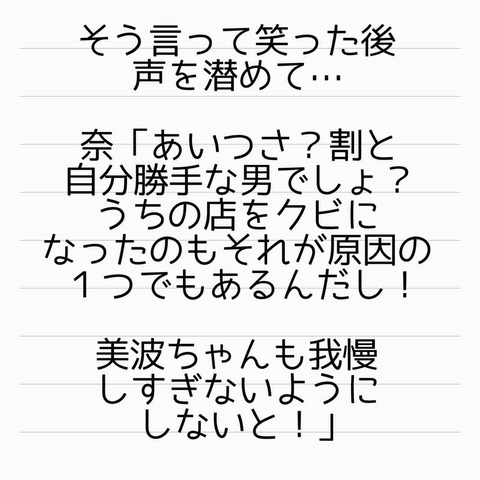 そう言って笑った後
声を潜めて…
奈「あいつさ？割と
自分勝手な男でしょ？
うちの店をクビに
なったのもそれが原因の
１つでもあるんだし！
美波ちゃんも我慢
しすぎないように
しないと！」